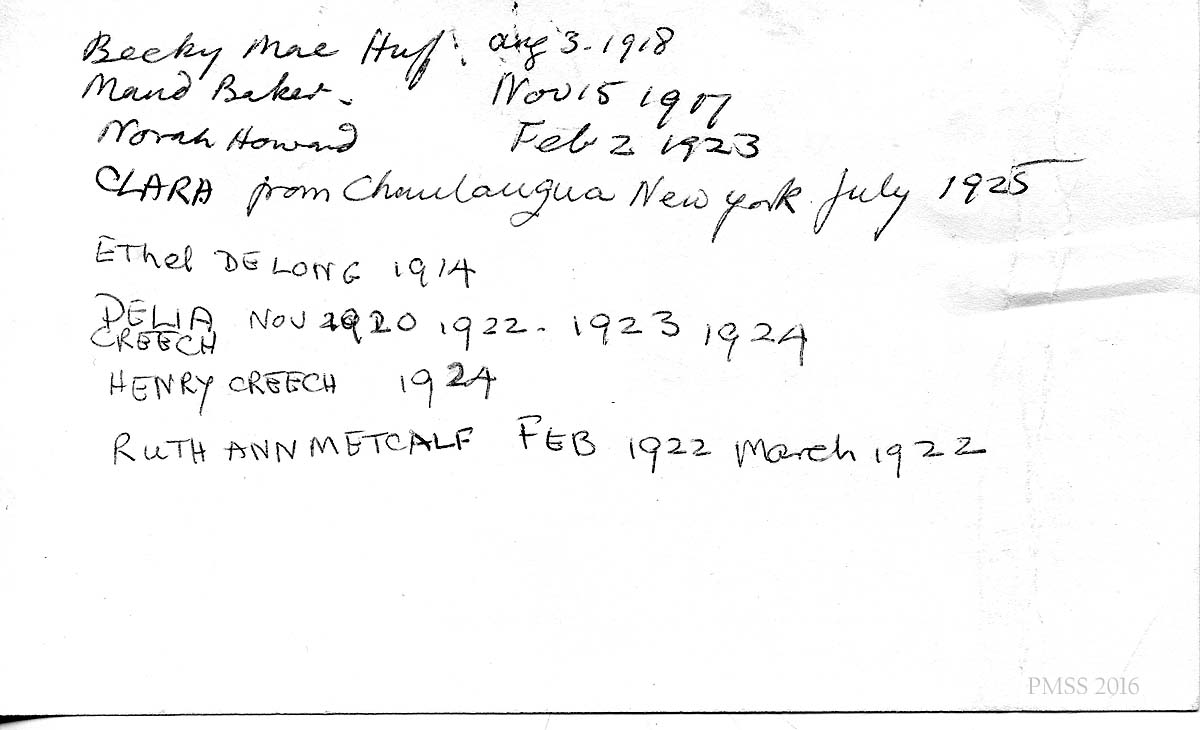 Becky Mae Huff. Aug 3-1918
Maud Baker. Nov 15 1917
Norah Howard Feb 2 1923
CLARA from Chautaugua New york July 1925
EThel DE LONG 1914
DELIA CREECH NOV 1920 1922- 1923 1924
HENRY CREECH 1924
RUTH ANN METCALF FEB 1922 March 1922
PMSS 2016